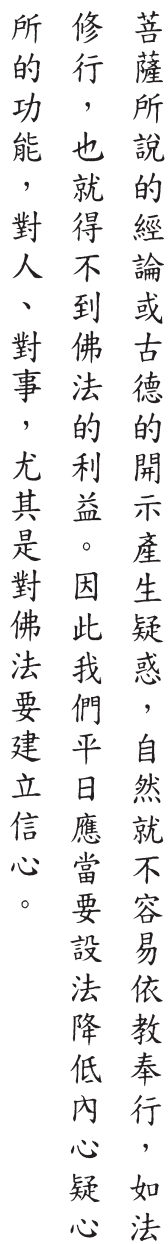 菩薩所說的經論或古德的開示產生疑惑，自然就不容易依教奉行，如法
修行，也就得不到佛法的利益。因此我們平日應當要設法降低內心疑心
所的功能，對人、對事，尤其是對佛法要建立信心。